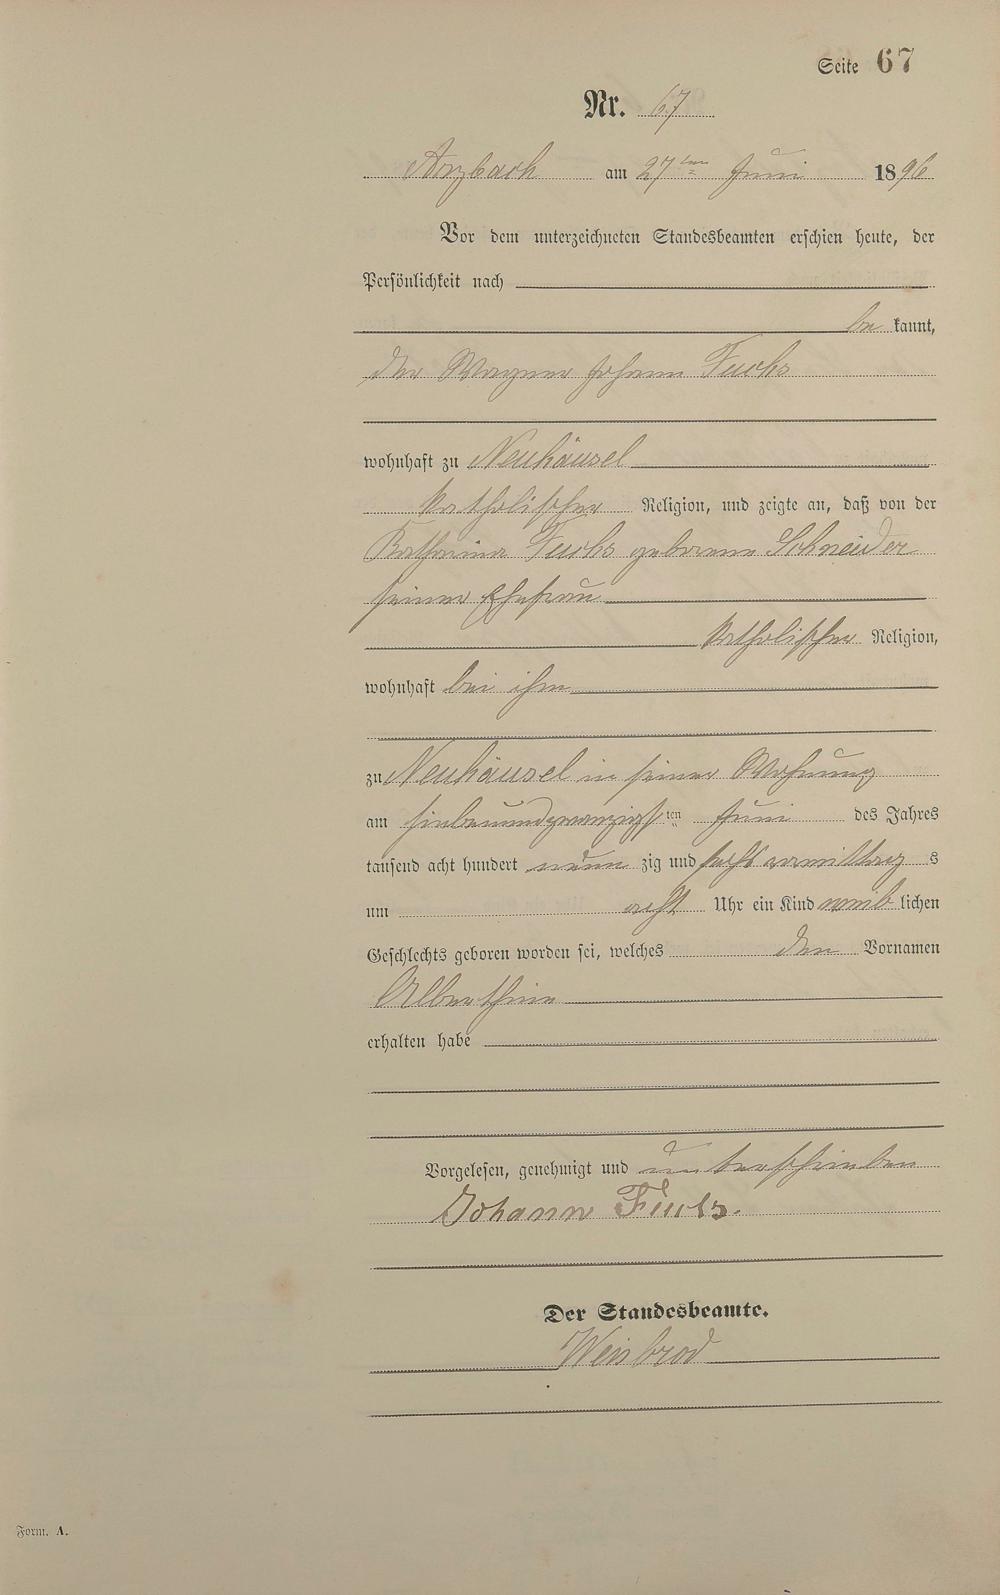 Seite 67
Nr. 67
Arzbach am 27ten Juni 1896
Vor dem unterzeichneten Standesbeamten erschien heute, der
Persönlichkeit nach
be kannt,
der Wagner Johann Fuchs
wohnhaft zu Neuhäusel
katholischer Religion, und zeigte an, daß von der
Katharina Fuchs geborene Schneider
seiner Ehefrau
katholischer Religion,
wohnhaft bei ihm
zu Neuhäusel in seiner Wohnung
am siebenundzwanzigsten Juni des Jahres
tausend acht hundert neun zig und sechs vormittag s
um acht Uhr ein Kind weib lichen
Geschlechts geboren worden sei, welches den Vornamen
Alberthine
erhalten habe
Vorgelesen, genehmigt und unterschrieben
Johann Fuchs.
Der Standesbeamte.
Weisbrod
Form. A.